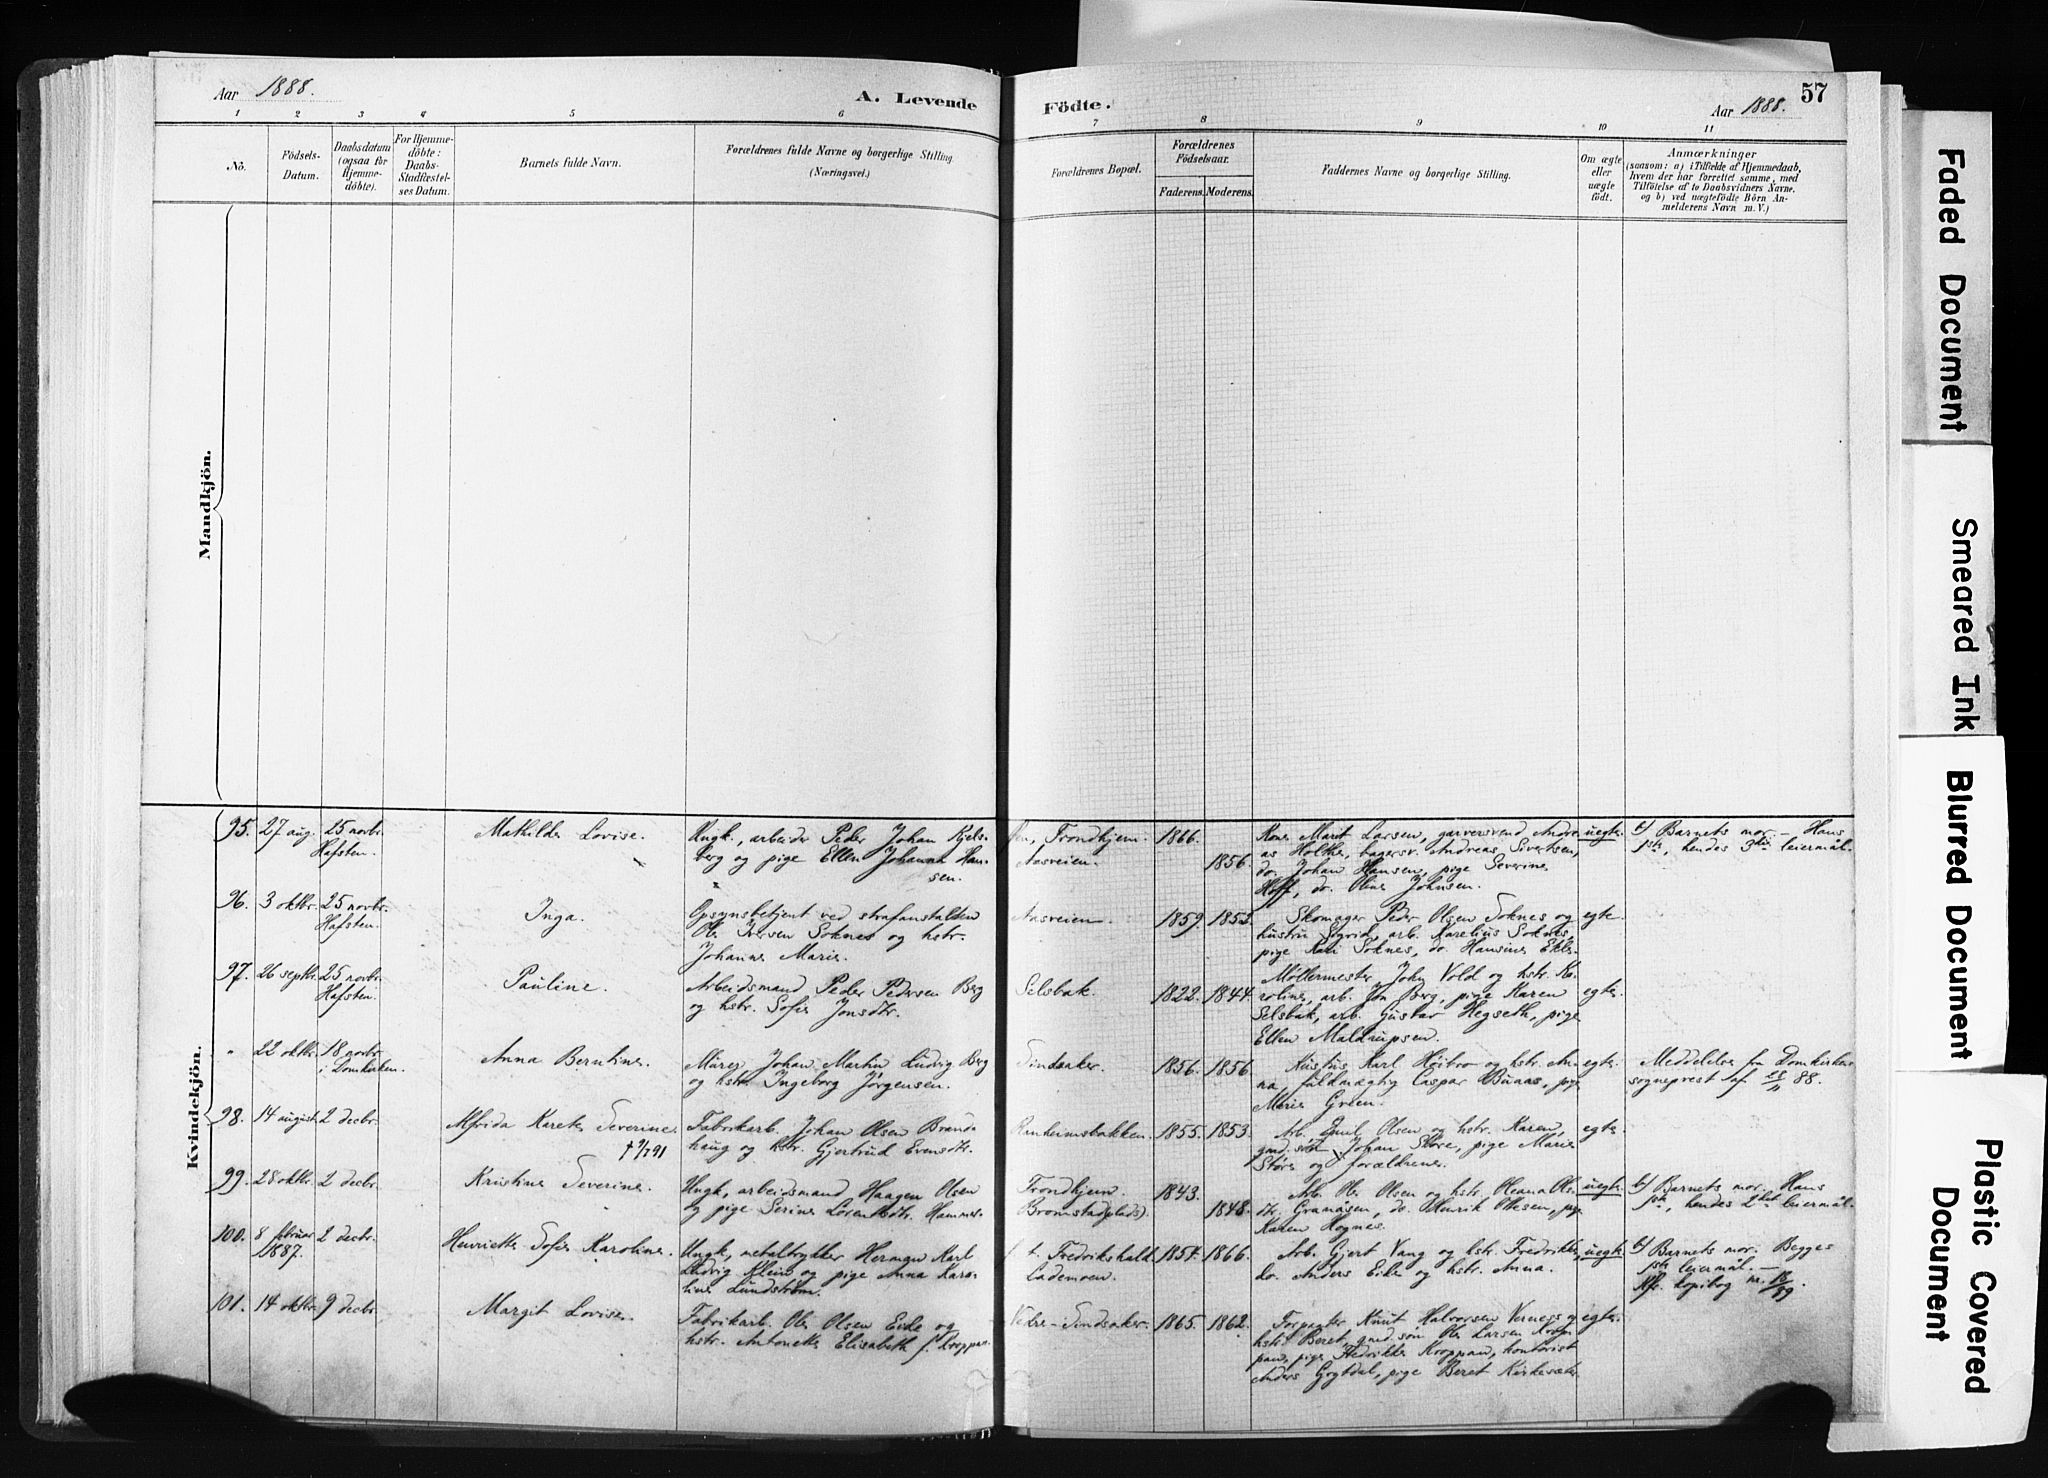 Aar 1888.
A. Levende
Födte.
Aar 1888.
57
1 2 3 4 5 6 7 8 9 10 11
No.
Födsels-
Datum.
Daabsdatum
(ogsaa for
Hjemme-
döbte).
For Hjemme-
döbte:
Daabs-
Stadfæstel-
ses Datum.
Barnets fulde Navn.
Forældrenes fulde Navne og borgerlige Stilling
(Næringsvei.)
Forældrenes Bopæl.
Forældrenes
Födselsaar.
Faderens. Moderens.
Faddernes Navne og borgerlige Stilling.
Om ægte
eller
uægte
födt.
Anmærkninger
(saasom: a) i Tilfælde af Hjemmedaab,
hvem der har forrettet samme, med
Tilföielse af to Daabsvidners Navne.
og b) ved uægtefödte Börn An-
melderens Navn m. V.)
Mandkjön.
Kvindekjön.
95. 27 aug. 25 novbr.
Hafsten.
Mathilde Lovise.
Ungk., arbeider Peder Johan Kjels-
berg og pige Ellen Johanna Han-
sen.
Trondhjem.
Aasveien.
1866.
1856.
Kone Marit Larsen, garversvend Andre-
as Holthe, bagersv. Andreas Sivertsen,
do. Johan Hansen, pige Severine
Hoff, do. Oline Johnsen.
uegte
b) Barnets mor. – Hans
1ste, hendes 3die leiermål.
96. 3 oktbr. 25 novbr.
Hafsten.
Inga.
Opsynsbetjent ved strafanstalten
Ole Iversen Soknes og hstr.
Johanne Marie.
Aasveien.
1859. 1853.
Skomager Peder Olsen Soknes og
hustru Sigrid, arb. Karelius Soknes,
pige Kari Soknes, do. Hansine Ekle.
egte.
97. 26 septbr. 25 novbr.
Hafsten.
Pauline.
Arbeidsmand Peder Pedersen Berg
og hstr. Sofie Jonsdtr.
Selsbak.
1822. 1844.
Møllermester John Vold og hstr. Ka-
roline, arb. Jon Berg, pige Karen
Selsbak, arb. Gustav Hegseth, pige
Ellen Maldrupsen.
egte.
" 22 oktbr. 18 novbr.
i Domkirken.
Anna Berntine.
Murer Johan Martin Ludvig Berg
og hstr. Ingeborg Jørgensen.
Sindsaker.
1856. 1856.
Karl Høibro og hstr. An-
na, fuldmægtig Caspar Buaas, pige
Marie Green.
egte.
Meddelelse fra Domkirkens
sogneprest af 28/11 88.
98. 14 august 2 decbr.
Alfrida Karete Severine.
† 9/7 91
Fabrikarb. Johan Olsen Branda-
haug og hstr. Gjertrud Evensdtr.
Ranheimsbakken.
1855. 1853.
Arb. Emil Olsen og hstr. Karen,
gmd.søn Johan Støre, pige Marie
Støre og forældrene.
egte.
99. 28 oktbr. 2 decbr.
Kristine Severine.
Ungk, arbeidsmand Haagen Olsen
og pige Serine Lorentsdtr. Hammer.
Trondhjem.
Bromstadplads.
1843.
1848.
Arb. Ole Olsen og hstr. Oleana Ols-
dtr. Granåsen, do. Henrik Ottesen, pige
Karen Hognes.
uegte.
b) Barnets mor. Hans
1ste, hendes 2det leiermål.
100. 8 februar 2 decbr.
1887.
Henriette Sofie Karoline.
Ungk, metaltrykker Herman Karl
Ludvig Klein og pige Anna Karo-
line Lundstrøm.
f. t. Fredrikshald.
Lademoen.
1857. 1866.
Arb. Gjert Vang og hstr. Fredrikke,
do. Anders Eide og hstr. Anna.
uegte.
b) Barnets mor. Begges
1ste leiermål. –
kopibog nr. 18/89.
101. 14 oktbr. 9 decbr.
Margit Lovise.
Fabrikarb. Ole Olsen Eide og
hstr. Antonette Elisabeth f. Kroppan.
Nedre-Sindsaker.
1865. 1862.
Forpagter Knut Halvorsen Verness og
hstr. Beret, gmd.søn Ole Larsen Krop-
pan, pige Fredrikke Kroppan, kontorist
Anders Grytdal, pige Beret Kirkesæter.
egte.
Faded Document
Smeared Ink
Blurred Document
Plastic Covered
Document